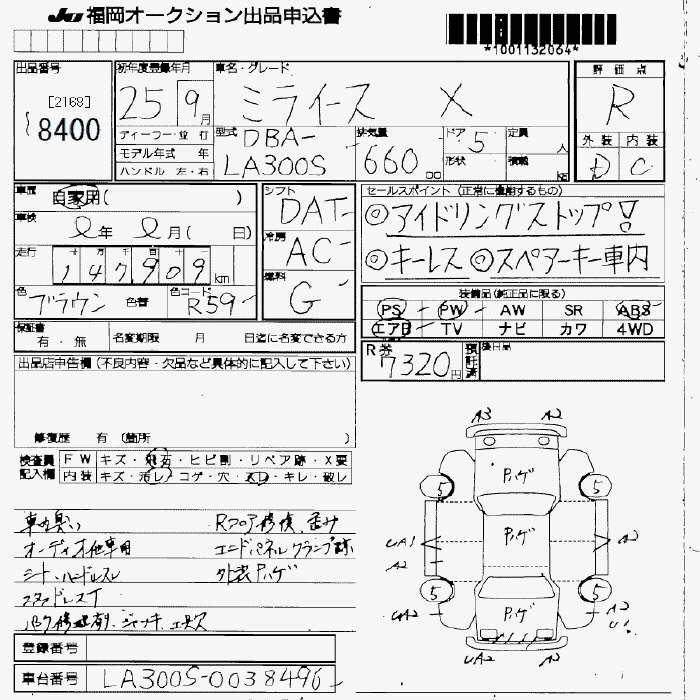 JU 福岡オークション出品申込書
*1001132064*
出品番号
[2168]
8400
初年度登録年月
25 9月
車名・グレード
ミライース X
評価点
R
外装 内装
D C
ディーラー・並行
モデル年式 年
ハンドル 左・右
型式
DBA-
LA300S
排気量
660 cc
ドア 5
形状
定員 人
積載 kg
車歴
自家用( )
車検
年 月( 日)
走行
147909 km
色
ブラウン 色替
色コード
R59
シフト
DAT
冷房
AC
燃料
G
セールスポイント(正常に機能するもの)
◎アイドリングストップ!
◎キーレス ◎スペアーキー車内
装備品(純正品に限る)
PS PW AW SR ABS
エアB TV ナビ カワ 4WD
保証書
有・無
名変期限 月 日迄に名変できる方
R券
7320円
預託済
後日品
出品店申告欄(不良内容・欠品など具体的に記入して下さい)
修復歴 有(箇所 )
検査員
記入欄
FW キズ・飛石・ヒビ割・リペア跡・X要
内装 キズ・汚レ・コゲ・穴・スレ・キレ・破レ
車内臭い
オーディオ他車用
シート・ハンドルスレ
スタッドレスT
パンク修理剤、ジャッキ、エアロス
Rフロア修復、歪み
エンドパネルクランプ跡
外装Pハゲ
A3 A2
Pハゲ
5 5
Pハゲ
UA1
A2
A2
5 5
Pハゲ
UA2
A2
U1
UA2 A2
登録番号
車台番号 LA300S-0038496